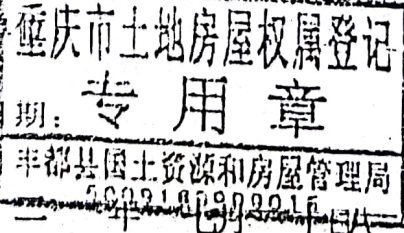 重庆市土地房屋权属登记
专用章
期：
丰都县国土资源和房屋管理局